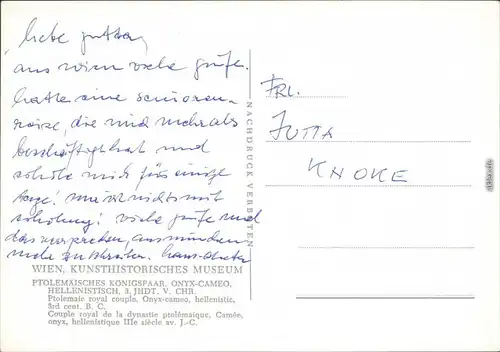 liebe jutta,
aus wien viele grüße.
hatte eine senioren-
reise, die mich mehr als
beschäftigt hat und
mich für einige
tage! nichts mit
erholung! viele grüße und
das versprechen,
mehr zu schreiben. hans-dieter
WIEN, KUNSTHISTORISCHES MUSEUM
PTOLEMÄISCHES KÖNIGSPAAR, ONYX-CAMEO,
HELLENISTISCH, 3. JHDT. V. CHR.
Ptolemaic royal couple, Onyx-cameo, hellenistic,
3rd cent. B. C.
Couple royal de la dynastie ptolémaïque, Camée,
onyx, hellénistique IIIe siècle av. J.-C.
NACHDRUCK VERBOTEN
FRL.
JUTTA
KNOKE